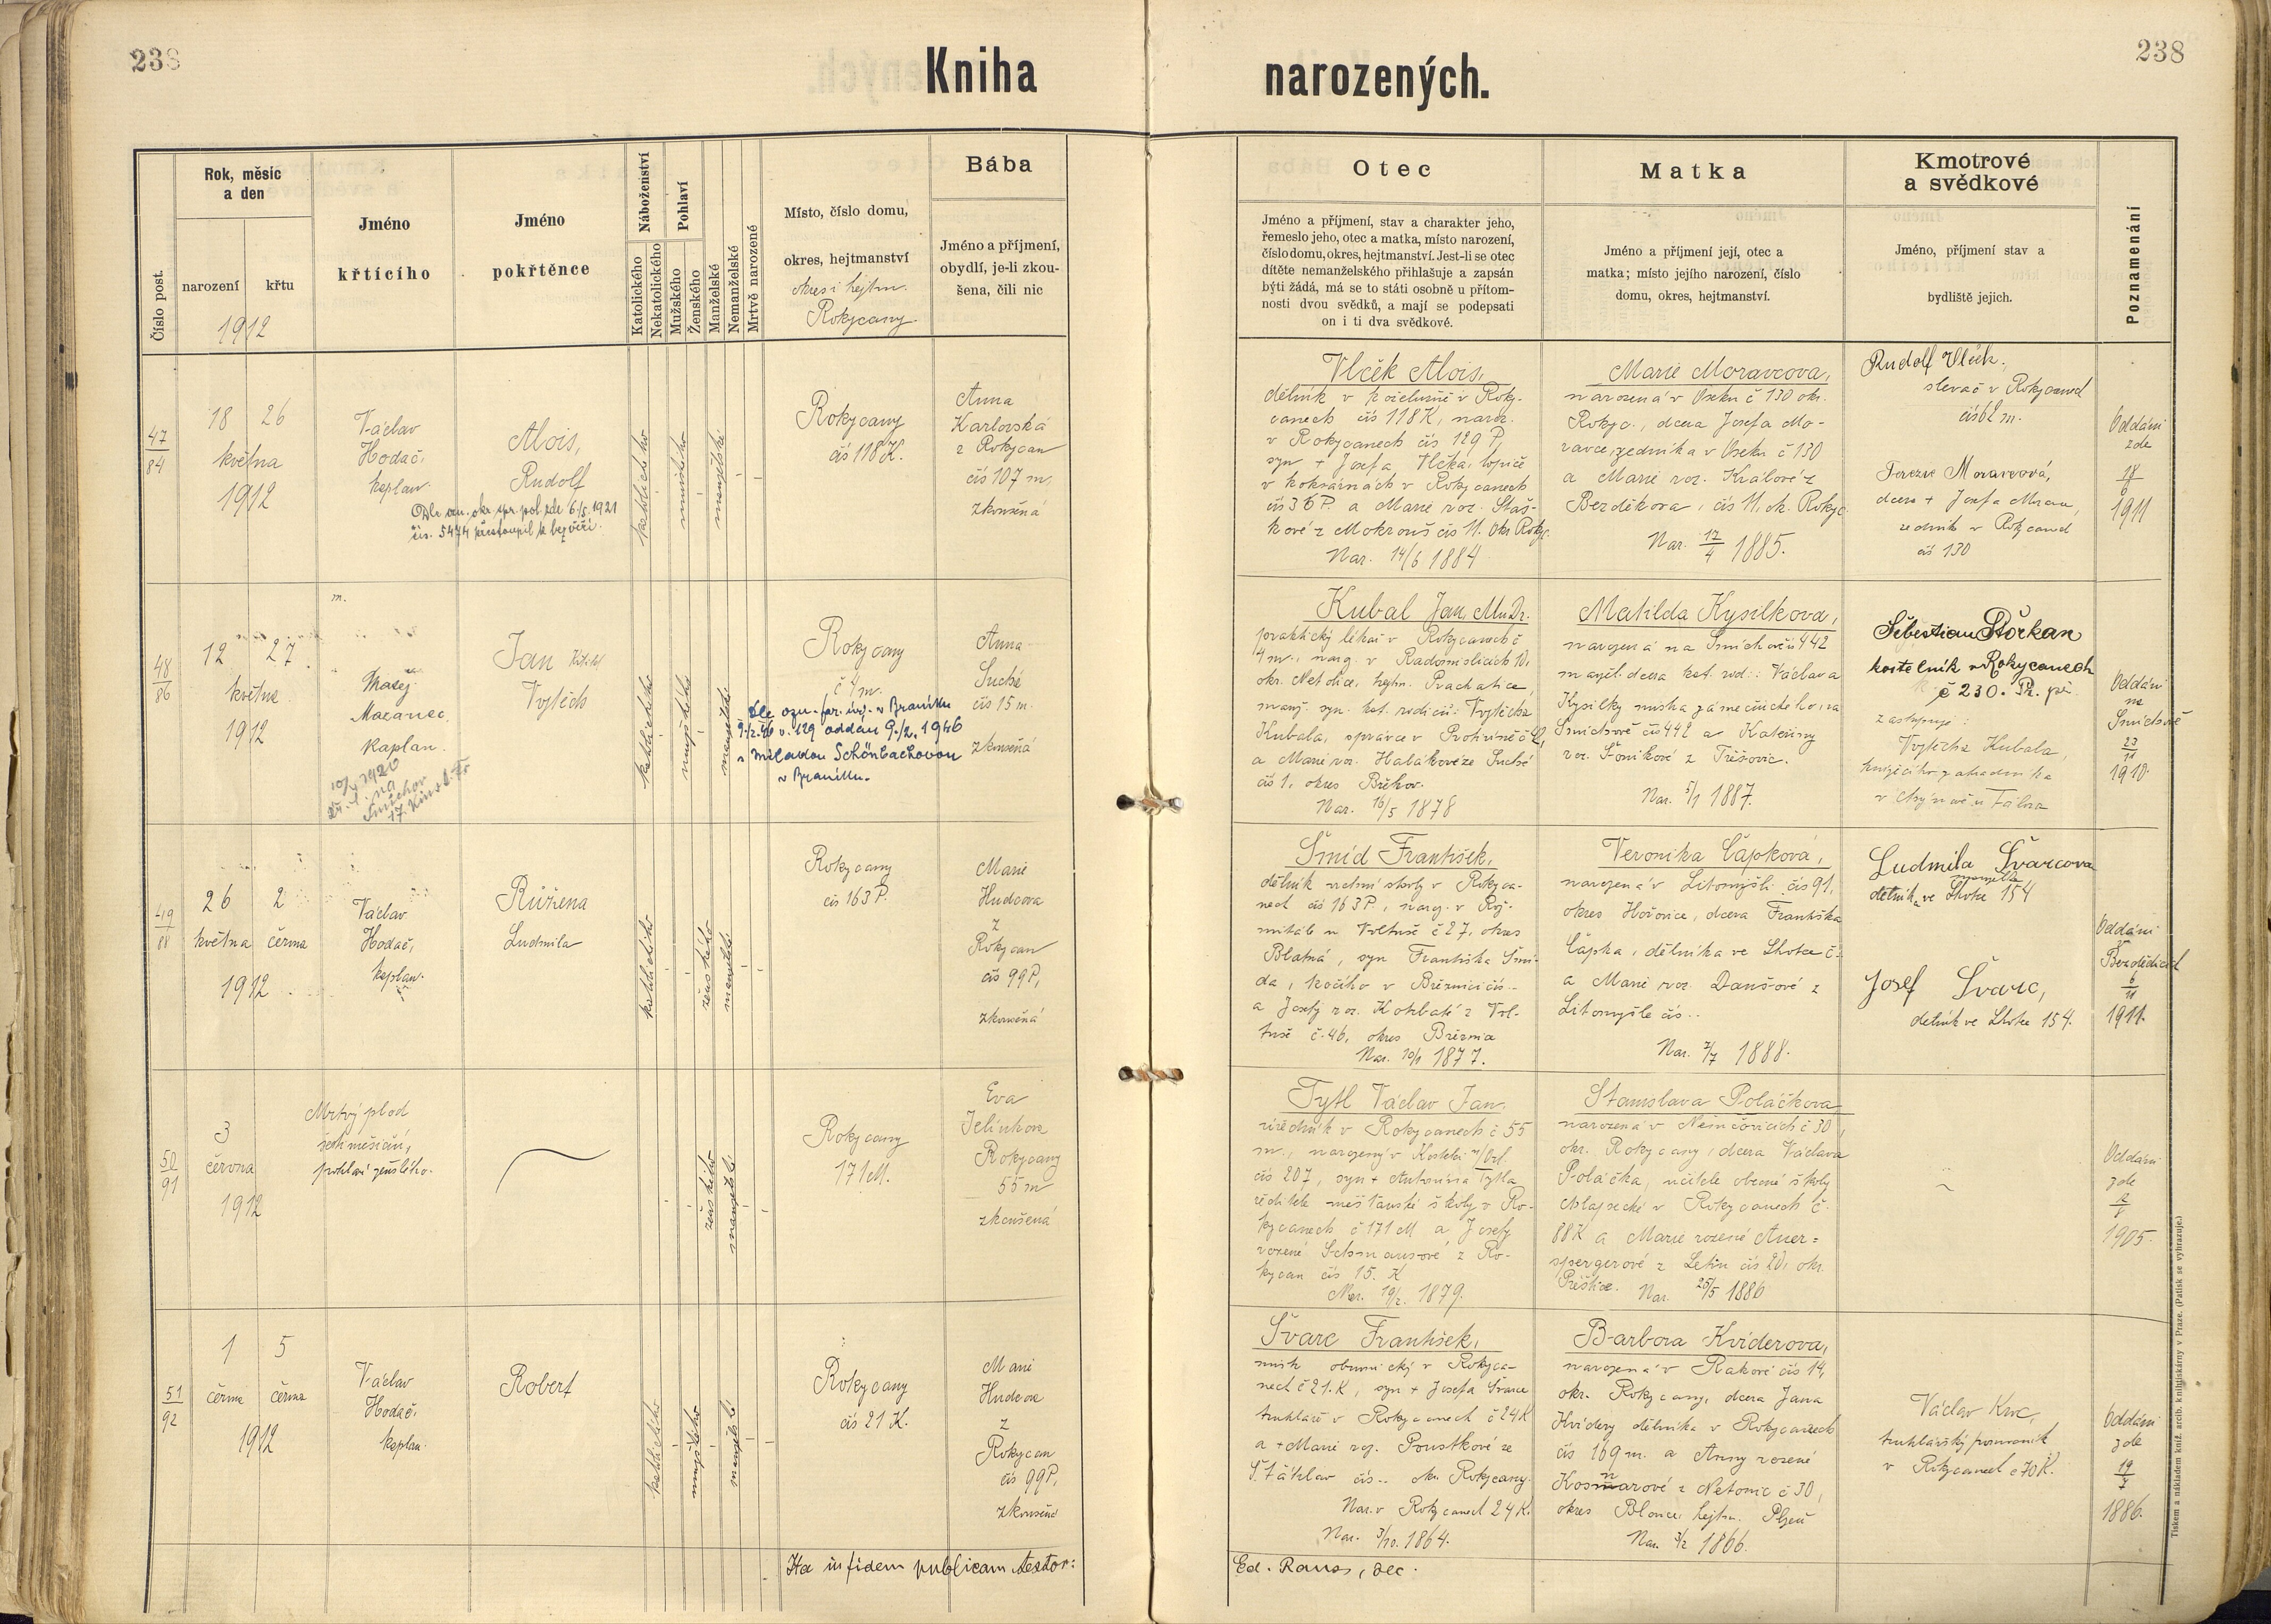 238
Kniha
narozených.
238
Číslo post.
Rok, měsíc
a den
narození
křtu
1912
Jméno
křticího
Jméno
pokřtěnce
Náboženství
Katolického
Nekatolického
Pohlaví
Mužského
Ženského
Manželské
Nemanželské
Mrtvě narozené
Místo, číslo domu,
okres, hejtmanství
okres i hejtm.
Rokycany.
Bába
Jméno a příjmení,
obydlí, je-li zkou-
šena, čili nic
Otec
Jméno a příjmení, stav a charakter jeho,
řemeslo jeho, otec a matka, místo narození,
číslo domu, okres, hejtmanství. Jest-li se otec
dítěte nemanželského přihlašuje a zapsán
býti žádá, má se to státi osobně u přítom-
nosti dvou svědků, a mají se podepsati
on i ti dva svědkové.
Matka
Jméno a příjmení její, otec a
matka; místo jejího narození, číslo
domu, okres, hejtmanství.
Kmotrové
a svědkové
Jméno, příjmení stav a
bydliště jejich.
Poznamenání
47
84
18 26
května
1912
Václav
Hodač,
kaplan.
Alois,
Rudolf
Dle ozn. okr. spr. pol. zde 6/5. 1921
čís. 5474 přestoupil k bezvěří.
katolického
mužského
manželské
Rokycany
čís 118 K.
Anna
Karlovská
z Rokycan
čís 107 m,
zkoušená
Vlček Alois,
dělník v koželužně v Roky-
canech čís 118 K, naroz.
v Rokycanech čís 129 P,
syn + Josefa Vlčka, topiče
v koksárnách v Rokycanech
čís 36 P. a Marie roz. Staš-
kové z Mokrouš čís 11. okr Rokyc.
Nar. 14/6 1884
Marie Moravcova,
narozená v Oseku č 130 okr.
Rokyc., dcera Josefa Mo-
ravce, zedníka v Oseku č 130
a Marie roz. Králové z
Bezděkova, čís 11, ok. Rokyc
Nar. 17/4 1885.
Rudolf Vlček.
slevač v Rokycanech
čís 62 m.
Terezie Moravcová,
dcera + Josefa Morav.
zedník v Rokycanech
čís 130
Oddáni
zde
1911
48
86
12 27
května
1912
m.
Matěj
Mazanec,
kaplan.
Jan
Vojtěch
katolického
mužského
manželské
Rokycany
č 4 m.
Dle ozn. far. úř. v Braníku
9./2. 46 v. 129 oddán 9./2. 1946
s Miladou Schönbachovou
v Braníku.
Anna
Suchá
čís 15 m.
zkoušená
Kubal Jan, MuDr.
praktický lékař v Rokycanech č
4 m., naroz. v Radomilicích 10,
okr. Netolice, hejtm. Prachatice,
manž. syn. kat. rodičů: Vojtěcha
Kubala, správce v Protivíně č 2,
a Marie roz. Halákové ze Suché
čís 1, okres Břehov.
Nar. 16/5 1878
Matilda Kysilkova,
narozená na Smíchově čís 442
manžel. dcera kat. rod.: Václava
Kysilky mistra zámečnického, na
Smíchově čís 442 a Kateřiny
roz. Foníkové z Třešovic.
Nar. 5/1 1887.
Šebestian Štörkan
kostelník v Rokycanech
č 230. Pr. př.
zastupuje:
Vojtěcha Kubala,
knížecího zahradníka
Oddáni
na
Smíchově
23
11
1910.
49
88
26 2
května června
1912
Václav
Hodač,
kaplan.
Růžena
Ludmila
katolického
ženského
manželské
Rokycany
čís 163 P.
Marie
Hudcova
z
Rokycan
čís 99 P,
zkoušená
Šmíd František,
narozen v Rož-
mitále u Voltuše č 27, okres
Blatná, syn Františka Šmí-
da, kočího v Březnici čís..
a Josefy roz. Kohbaté z Vol-
tuše č. 46, okres Březnice
Nar. 10/1 1877.
Veronika Čápková,
narozená v Litomyšli čís 91,
okres Hořovice, dcera Františka
Čápka, dělníka ve Lhotce č.
a Marie roz. Danšové z
Litomyšle čís..
Nar. 7/7 1888.
Ludmila Švarcova
manželka
dělníka ve Lhotce 154
Josef Švarc,
dělník ve Lhotce 154.
Oddáni
v
Bezdědicích
6
11
1911.
50
91
3
června
1912
Mrtvý plod
šestiměsíční,
pohlaví ženského.
ženského
manželské
Rokycany
171 M.
Eva
Jelínkova
Rokycany
55 m
zkoušená
Tytl Václav Jan,
úředník v Rokycanech č 55
m., narozený v Kostelci n/Orl.
čís 207, syn + Antonína Tytla
ředitele měšťanské školy v Ro-
kycanech č 171 M a Josefy
rozené Schmausové z Ro-
kycan čís 15. K
Nar. 19/2. 1879.
Stanislava Poláčkova
narozená v Němčovicích č 30,
okr. Rokycany, dcera Václava
Poláčka, učitele obecné školy
chlapecké v Rokycanech č.
88 K a Marie rozené Auer=
spergerové z Letin čís 20, okr.
Přeštice. Nar. 25/5 1886
Oddáni
zde
1905.
51
92
1 5
června června
1912
Václav
Hodač,
kaplan.
Robert
katolického
mužského
manželské
Rokycany
čís 21 K.
Marie
Hudcova
z
Rokycan
čís 99 P,
zkoušená
Švarc František,
mistr obuvnický v Rokyca-
nech č 21. K, syn + Josefa Švarce
truhláře v Rokycanech č 24 K
a + Marie roz. Poustkové ze
Šťáhlav čís.. okr. Rokycany.
Nar. v Rokycanech 24 K.
Nar. 3/10. 1864.
Barbora Kviderova,
narozená v Rakové čís 14,
okr. Rokycany, dcera Jana
Kvidery dělníka v Rokycanech
čís 169 m. a Anny rozené
Kosnarové z Netonic č 30,
okres Blovice, hejtm. Plzeň
Nar. 3/2 1866.
Václav Kvc,
truhlářský pomocník
v Rokycanech č 70 K.
Oddáni
zde
19
7
1886.
Ita in fidem publicam testor:
Ed. Raus, dec.
Tiskem a nákladem kníž. arcib. knihtiskárny v Praze. (Patisk se vyhrazuje.)